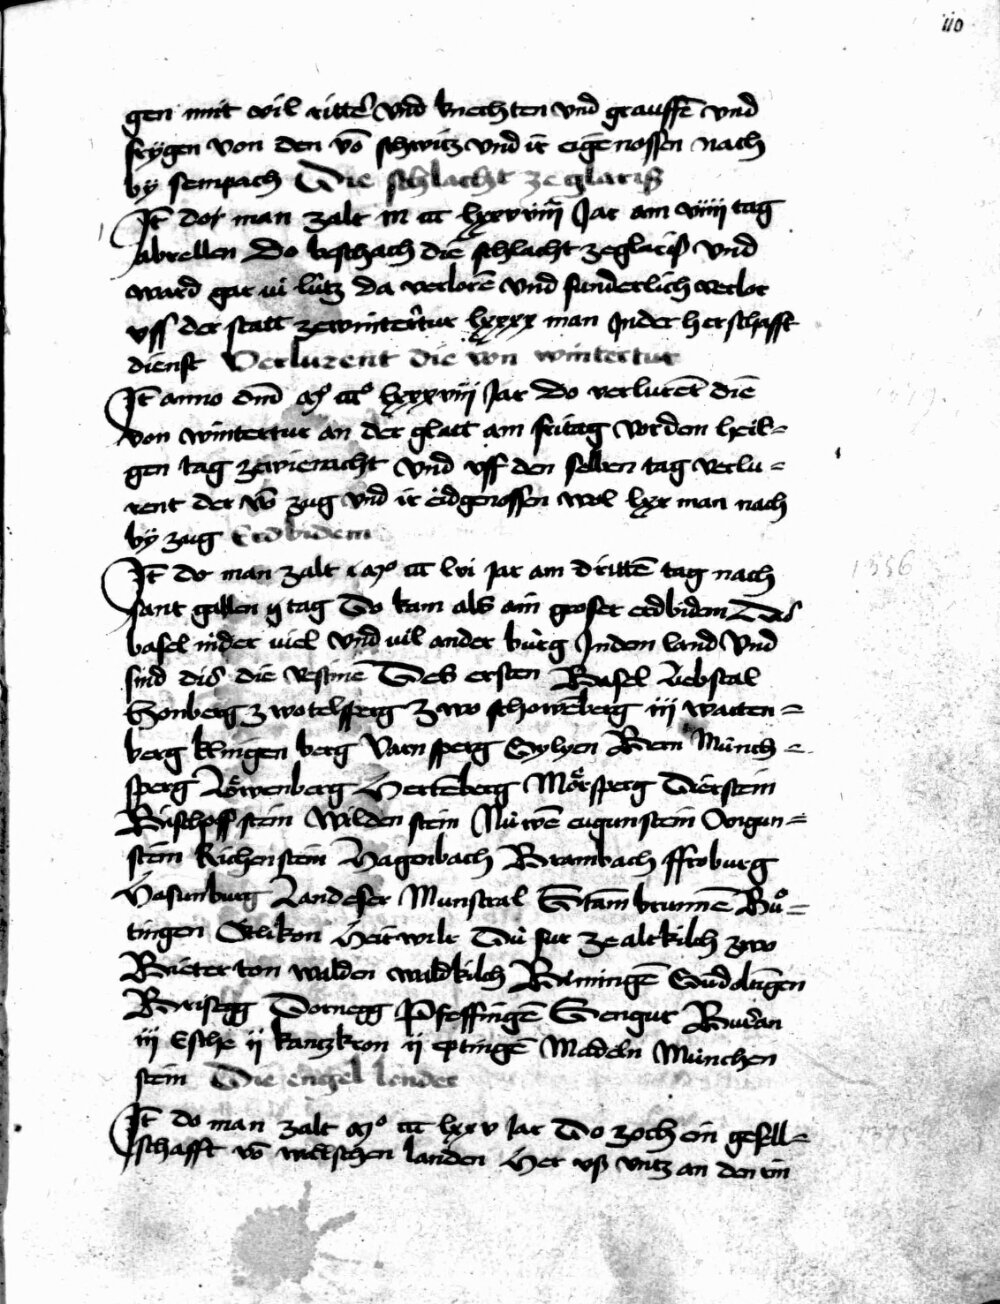 110
gen mit vil ritter vnd knechten vnd grauffē vnd
frygen von den vō schwitz vnd ir eigenossen nach
by sempach Die schlacht ze glariß
Jt̄ do man zalt m ccc lxxxviij Jar am viiij tag
abrellen Do beschach die schlacht ze glariß vnd
ward gar vil lütz da verlorē vnd sunderlich verlor
vff der statt ze wintertur lxxxx man Jn der herschafft
dienst Verlurent die von wintertur
Jt̄ anno dm̄ mº cccº lxxxviij Jar Do verlurēt die
von wintertur an der glatt am fritag vor dem heil=
gen tag ze wienacht vnd vff den selben tag verlu=
rent der vō zug vnd ir eidgenossen wol lxx man nach
by zug Erdbidem
Jt̄ do man zalt mº ccc lvi jar am drittē tag nach
sant gallen tag Do kam als ain groser erdbidem Das
basel nider viel vnd vil ander bürg Jn dem land Vnd
sind dis die vestinē Des ersten Basel Liebstal
Honberg zwo telsperg zwo schowēberg iij watten=
berg klingen berg Varn sperg Gylyen Bern Münch=
sperg Löwenberg Hertēberg Mörsperg Dierstein
Bischoff stein Wilden stein Nüwē eugunstein Ougun=
stein Richenstein Hagenbach Brambach ffroburg
Hasunburg Landeser Munstral Stambrunnē Bů=
tingen Stlikon Heitwilr Dü fur ze altkilch zwo
Brieterton walden waldkilch Ramingē Gundoltigen
Brisegg Dornegg Pfeffingē Sengur Buran
iij Esche ij kantzkron ij eptingē Madeln München
stein Die engel lender
Jt̄ do man zalt mº ccc lxxv Jar Do zoch ein gesell=
schafft vō welschen landen Her vß vntz an den rin
1356